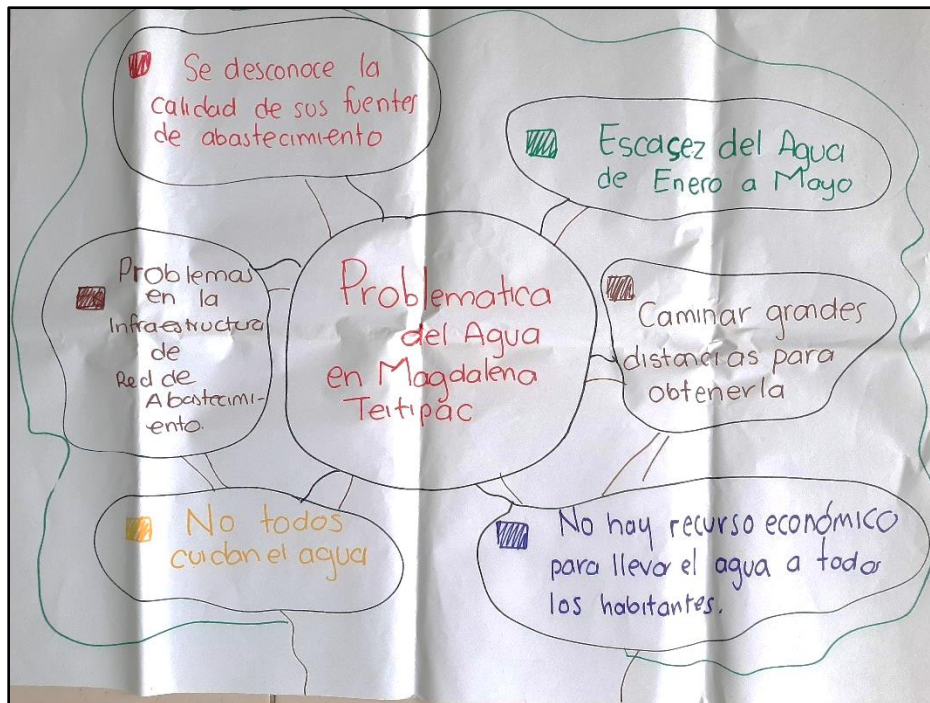 Se desconoce la
calidad de sus fuentes
de abastecimiento
Escasez del Agua
de Enero a Mayo
Problemas
en la
Infraestructura
de
Red de
Abastecimi-
ento.
Problematica
del Agua
en Magdalena
Teitipac
Caminar grandes
distancias para
obtenerla
No todos
cuidan el agua
No hay recurso económico
para llevar el agua a todos
los habitantes.